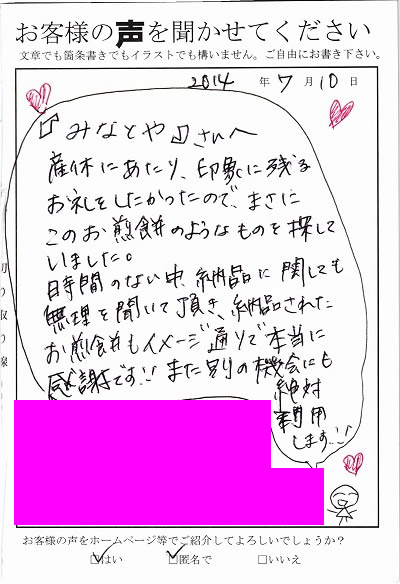 お客様の声を聞かせてください
文章でも箇条書きでもイラストでも構いません。ご自由にお書き下さい。
2014 年 7 月 10 日
『みなとや』さんへ
産休にあたり、印象に残る
お礼をしたかったので、まさに
このお煎餅のようなものを探して
いました。
時間のない中、納品に関しても
無理を聞いて頂き、納品された
お煎餅もイメージ通りで本当に
感謝です!! また別の機会にも
絶対
利用
します!!
切り取り線
お客様の声をホームページ等でご紹介してよろしいでしょうか？
はい 匿名で いいえ